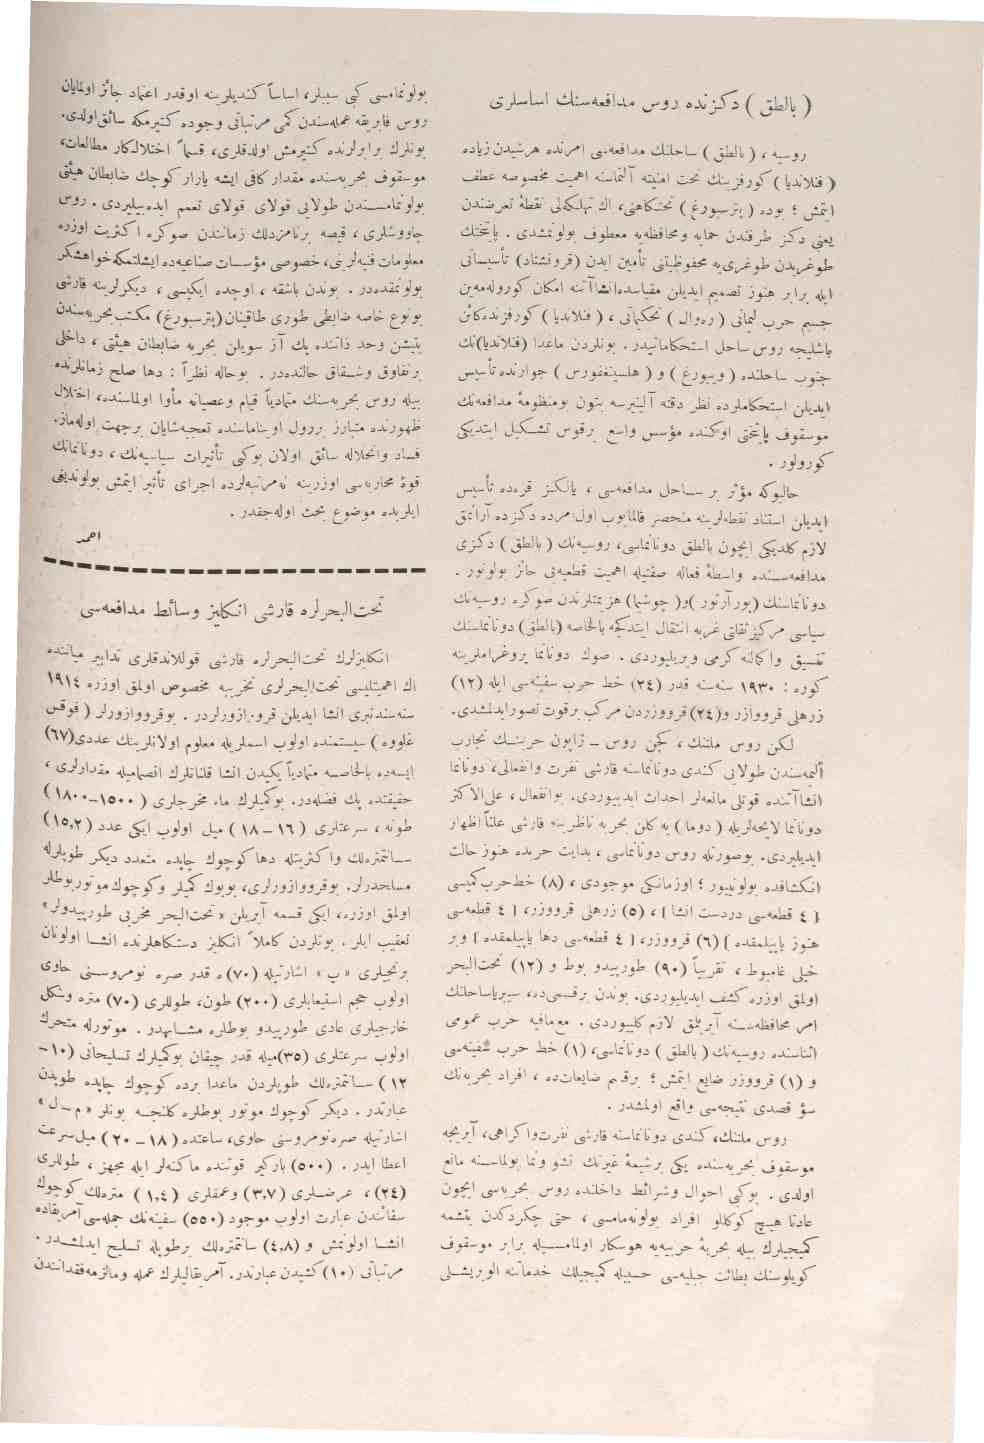 ( بالطق ) دكزنده روس مدافعه‌سنك اساسلری
روسیه ، ( بالطق ) ساحلنك مدافعه‌سی امرنده هرشیدن زیاده
( فنلاندیا ) كورفزینك تحت امنیته آلنماسنه اهمیت مخصوصه عطف
ایتمش ؛ بوده ( پترسبورغ ) تختكاهنی، اك تهلكه‌لی نقطۀ تعرضندن
یعنی دكز طرفندن حمایه ومحافظه‌یه معطوف بولونمشدی . پایتختك
طوغریدن طوغری‌یه محفوظیتنی تأمین ایدن (قرونشتاد) تأسیساتی
ایله برابر هنوز تصمیم ایدیلن مقیاسده‌انشاآتنه امكان كوروله‌مه‌ین
جسیم حرب لیمانی ( ره‌وال ) تحكیماتی ، ( فنلاندیا ) كورفزنده‌كائن
باشلیجه روس ساحل استحكاماتیدر. بونلردن ماعدا (فنلاندیا)نك
جنوب ساحلنده ( ویبورغ ) و ( هلسینغفورس ) جوارنده تأسیس
ایدیلن استحكاملرده نظر دقته آلینیرسه بتون بومنظومۀ مدافعه‌نك
موسقوف پایتختی اوكنده مؤسس واسع برقوس تشكیل ایتدیكی
كورولور .
حالبوكه مؤثر بر ساحل مدافعه‌سی ، یالكز قره‌ده تأسیس
ایدیلن استناد نقطه‌لرینه منحصر قالمایوب اول‌امرده دكزده آرانمق
لازم كلدیكی ایچون بالطق دونانماسی، روسیه‌نك ( بالطق ) دكزی
مدافعه‌سنده واسطۀ فعاله صفتیله اهمیت قطعیه‌یی حائز بولونور .
دونانماسنك (پورآرتور )و( چوشیما) هزیمتلرندن صوكره روسیه‌نك
سیاسی مركز ثقلتی غربه انتقال ایتدكجه بالخاصه (بالطق) دونانماسنك
تنسیق واكمالنه كرمی ویریلیوردی . صوك دونانما پروغراملرینه
كوره : ١٩٣٠ سنه‌سنه قدر (٢٤) خط حرب سفینه‌سی ایله (١٢)
زرهلی قرووازر و(٢٤) قرووزردن مركب برقوت تصورایدلمشدی.
لكن روس ملتنك ، كچن روس ــ ژاپون حربنك تجارب
ألیمه‌سندن طولایی كندی دونانماسنه قارشی نفرت وانفعالی، دونانما
انشاآتنده قوتلی مانعه‌لر احداث ایدییوردی. بوانفعال ، علی‌الاكثر
دونانما لایحه‌لریله ( دوما ) یه كلن بحریه ناظرینه قارشی علناً اظهار
ایدیلیردی. بوصورتله روس دونانماسی ، بدایت حربده هنوز حالت
انكشافده بولونییور ؛ اوزمانكی موجودی ، (٨) خط‌حرب‌كمیسی
[ ٤ قطعه‌سی دردست انشا ] ، (٥) زرهلی قرووزر، [ ٤ قطعه‌سی
هنوز یاپیلمقده ] (٦) قرووزر، [ ٤ قطعه‌سی دها یاپیلمقده ] وبر
خیلی غامبوط ، تقریباً (٩٠) طورپیدو بوط و (١٢) تحت‌البحر
اولمق اوزره كشف ایدیلیوردی. بوندن برقسمی‌ده، سیبریاساحلنك
امر محافظه‌سنه آیریلمق لازم كلییوردی . مع‌مافیه حرب عمومی
اثناسنده روسیه‌نك ( بالطق ) دونانماسی، (١) خط حرب سفینه‌سی
و (١) قرووزر ضایع ایتمش ؛ برقسم ضایعات‌ده ، افراد بحریه‌نك
سؤ قصدی نتیجه‌سی واقع اولمشدر .
روس ملتنك، كندی دونانماسنه قارشی نفرت‌واكراهی، آیریجه
موسقوف بحریه‌سنده یكی برشیمۀ غیرتك نشو ونما بولماسنه مانع
اولدی . بوكبی احوال وشرائط داخلنده روس بحریه‌سی ایچون
عادتا هیچ كوكللو افراد بولونه‌مامسی ، حتی چكردكدن یتشمه
كمیجیلرك بیله بحریۀ حربیه‌یه هوسكار اولمامسیله برابر موسقوف
كویلوسنك بطائت جبلیه‌سی حسبیله كمیجیلك خدماتنه الویریشلی
بولونمامسی كبی سببلر، اساساً كندیلرینه اوقدر اعتماد جائز اولمایان
روس فابریقه عمله‌سندن كمی مرتباتی وجوده كتیرمكه سائق اولدی.
بونلرك برابرلرنده كتیرمش اولدقلری، قسماً اختلالكار مطالعات،
موسقوف بحریه‌سنده مقدار كافی ایشه یارار كوچك ضابطان هیئتی
بولونمامسندن طولایی قولای قولای تعمم ایده‌بیلیردی . روس
چاووشلری ، قیصه برنامزدلك زمانندن صوكره اكثریت اوزره
معلومات فنیه‌لرینی، خصوصی مؤسسات صناعیه‌ده ایشلتمكه‌خواهشكر
بولونمقده‌در . بوندن باشقه ، اوچده ایكیسی ، دیكرلرینه قارشی
بونوع خاصه ضابطی طوری طاقینان (پترسبورغ) مكتب‌بحریه‌سندن
یتیشن وحد ذاتنده پك آز سویلن بحریه ضابطان هیئتی ، داخلی
برنفاق وشقاق حالنده‌در . بوحاله نظراً : دها صلح زمانلرنده
بیله روس بحریه‌سنك متمادیاً قیام وعصیانه مأوا اولماسنده، اختلال
ظهورنده متبارز بررول اوینامسنده تعجبه‌شایان برجهت اوله‌ماز.
فساد وانحلاله سائق اولان بوكبی تأثیرات سیاسیه‌نك ، دونانمانك
قوۀ محاربه‌سی اوزرینه نه‌مرتبه‌لرده اجرای تأثیر ایتمش بولوندیغی
ایلریده موضوع بحث اوله‌جقدر .
احمد
تحت‌البحرلره قارشی انكلیز وسائط مدافعه‌سی
انكلیزلرك تحت‌البحرلره قارشی قوللاندقلری تدابیر میاننده
اك اهمیتلیسی تحت‌البحرلری تخریبه مخصوص اولمق اوزره ١٩١٤
سنه‌سندنبری انشا ایدیلن قرووازورلردر . بوقرووازورلر ( فوقس
غلووه ) سیستمنده اولوب اسملریله معلوم اولانلرینك عددی(٦٧)
ایسه‌ده بالخاصه متمادیاً یكیدن انشا قلنانلرك انضمامیله مقدارلری ،
حقیقتده پك فضله‌در. بوكمیلرك ماء مخرجلری ( ١٥٠٠–١٨٠٠)
طونه ، سرعتلری (١٦ – ١٨ ) میل اولوب ایكی عدد (١٥,٢)
سانتمتره‌لك واكثریتله دها كوچوك چاپده متعدد دیكر طوپلرله
مسلحدرلر. بوقرووازورلری، بویوك كمیلر وكوچوك موتوربوطلر
اولمق اوزره، ایكی قسمه آیریلن « تحت‌البحر مخربی طورپیدولر»
تعقیب ایلر . بونلردن كاملاً انكلیز دستكاهلرنده انشا اولونان
برنجیلری «پ» اشارتیله (٧٠)ه قدر صره نومروسنی حاوی
اولوب حجم استیعابلری (٢٠٠) طون، طوللری (٧٠) متره وشكل
خارجیلری عادی طورپیدو بوطلره مشابهدر . موتورله متحرك
اولوب سرعتلری (٣٥)میله قدر چیقان بوكمیلرك تسلیحاتی (١٠–
١٢ ) سانتمتره‌لك طوپلردن ماعدا برده كوچوك چاپده طوپدن
عبارتدر. دیكر كوچوك موتور بوطلره كلنجه بونلر «م – ل»
اشارتیله صره‌نومروسنی حاوی، ساعتده (١٨ – ٢٠ ) میل‌سرعت
اعطا ایدر . (٥٠٠) باركیر قوتنده ماكنه‌لر ایله مجهز ، طوللری
(٢٤)، عرضلری (٣,٧) وعمقلری (١,٤ ) متره‌لك كوچوك
سفائندن عبارت اولوب موجود (٥٥٠) سفینه‌نك جمله‌سی آمریقاده
انشا اولونمش و (٤,٨) سانتمتره‌لك برطوپله تسلیح ایدلمشدر .
مرتباتی (١٠)كشیدن عبارتدر. آمریقالیلرك عمله ومالزمه‌فقدانندن